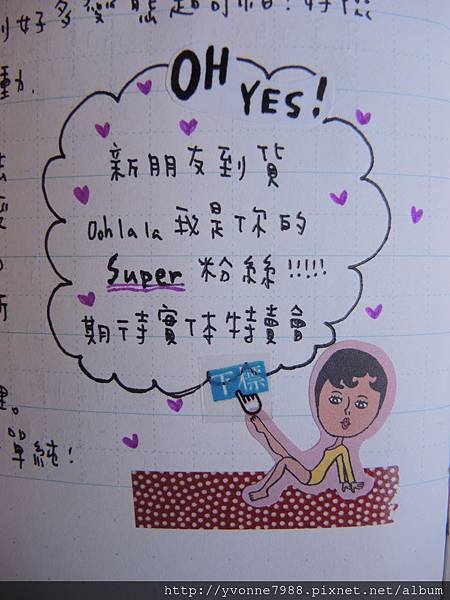 到好多
動.
OH
YES!
新朋友到貨
Oohlala 我是你的
Super 粉絲!!!!!
期待實体特賣會
下標
單純!
http://yvonne7988.pixnet.net/album